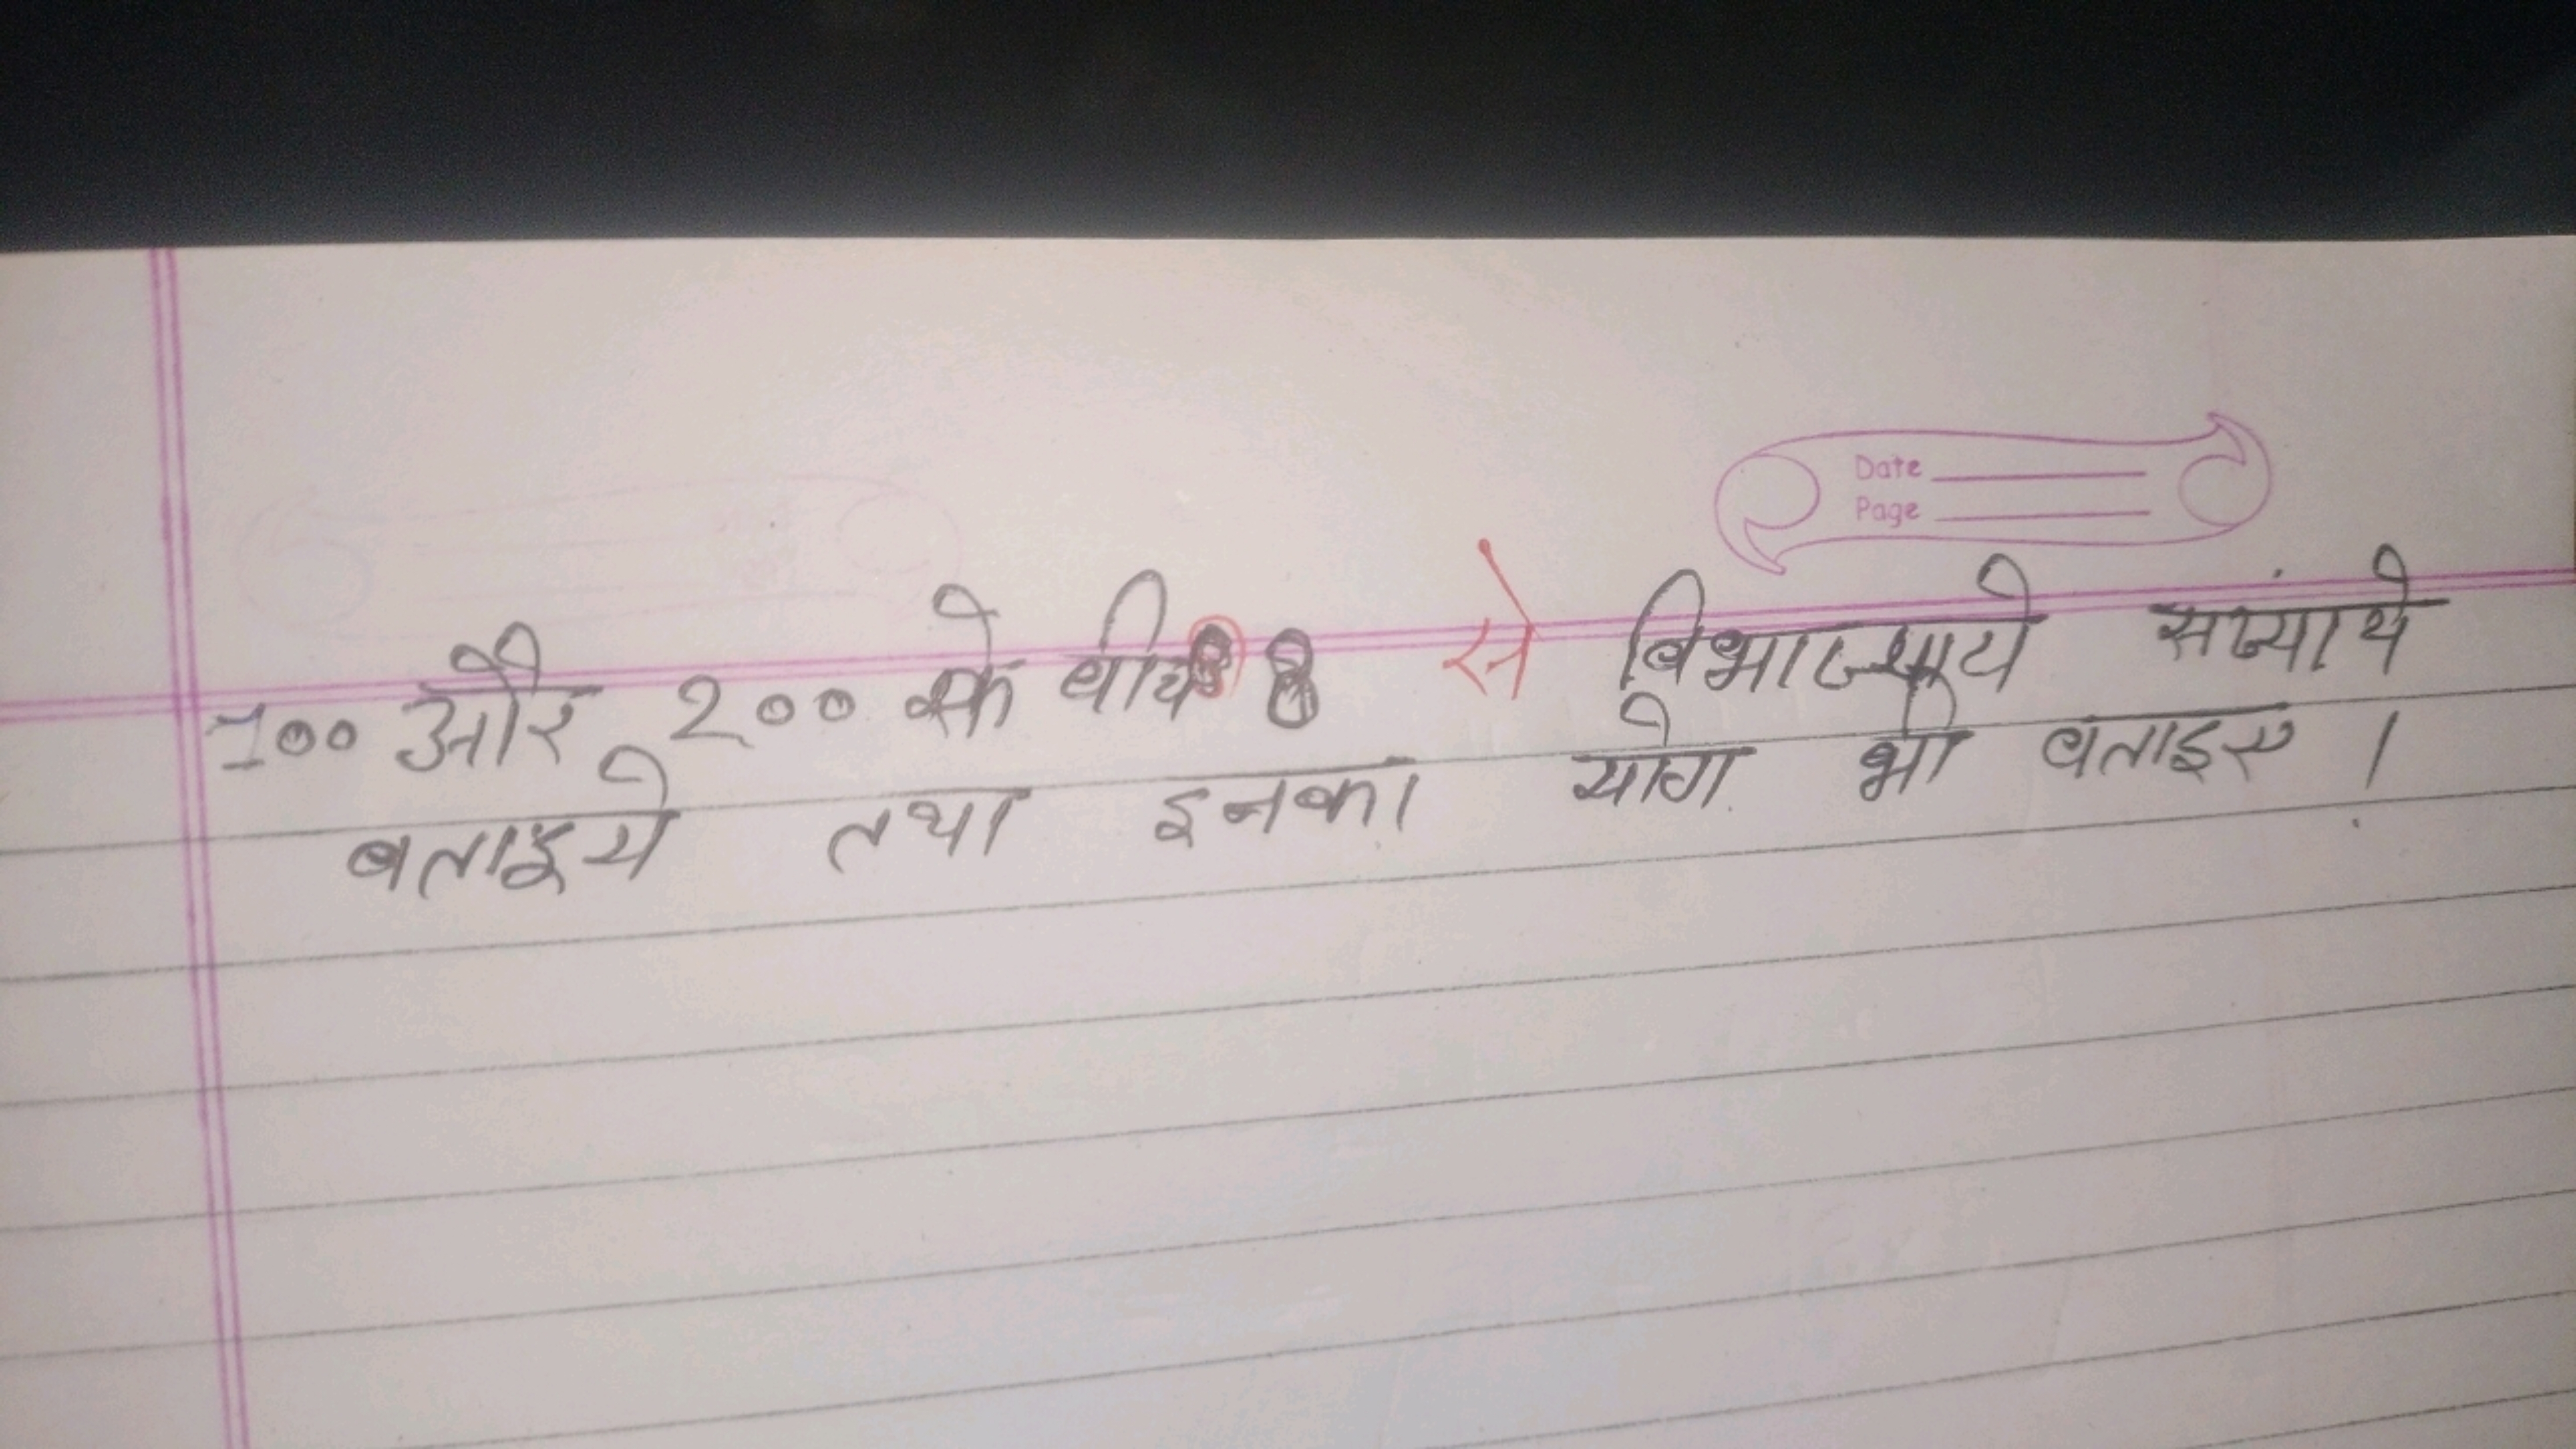 Date
Page
100 और 200 के बीच 8 से विभाज्य संख्याये
बताइये तथा इनका योग भी बताइए ।